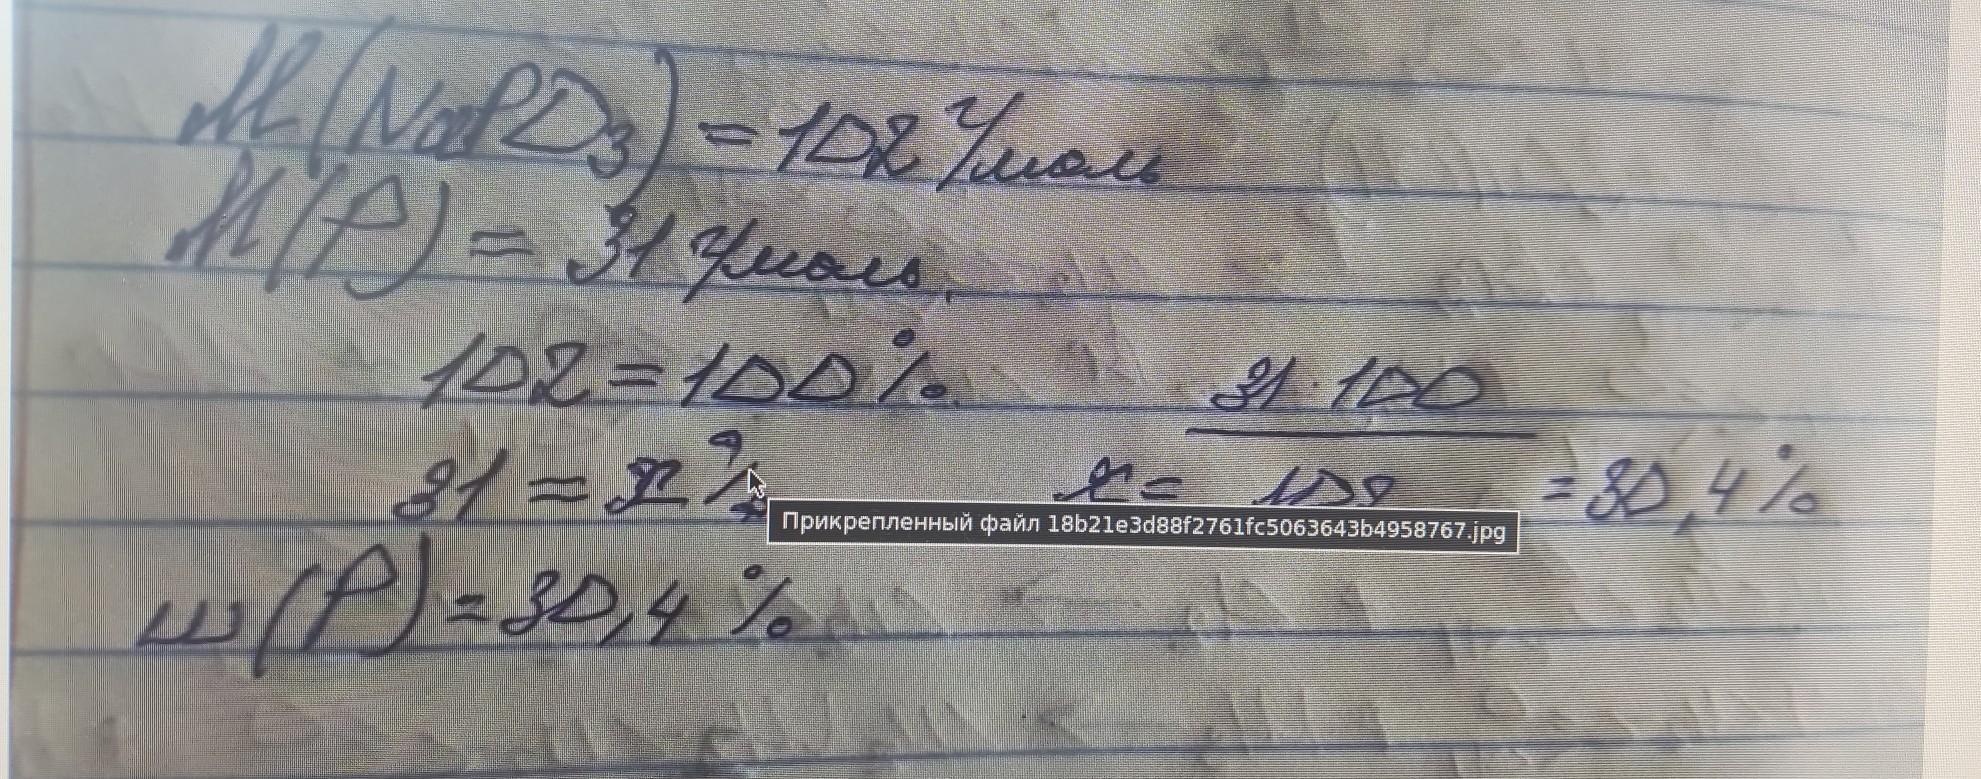 M(NaPO3) = 102 г/моль
M(P) = 31 г/моль.
102 = 100%
31 · 100
31 = x %
x = 102 = 30,4%
Прикрепленный файл 18b21e3d88f2761fc5063643b4958767.jpg
ω(P) = 30,4 %